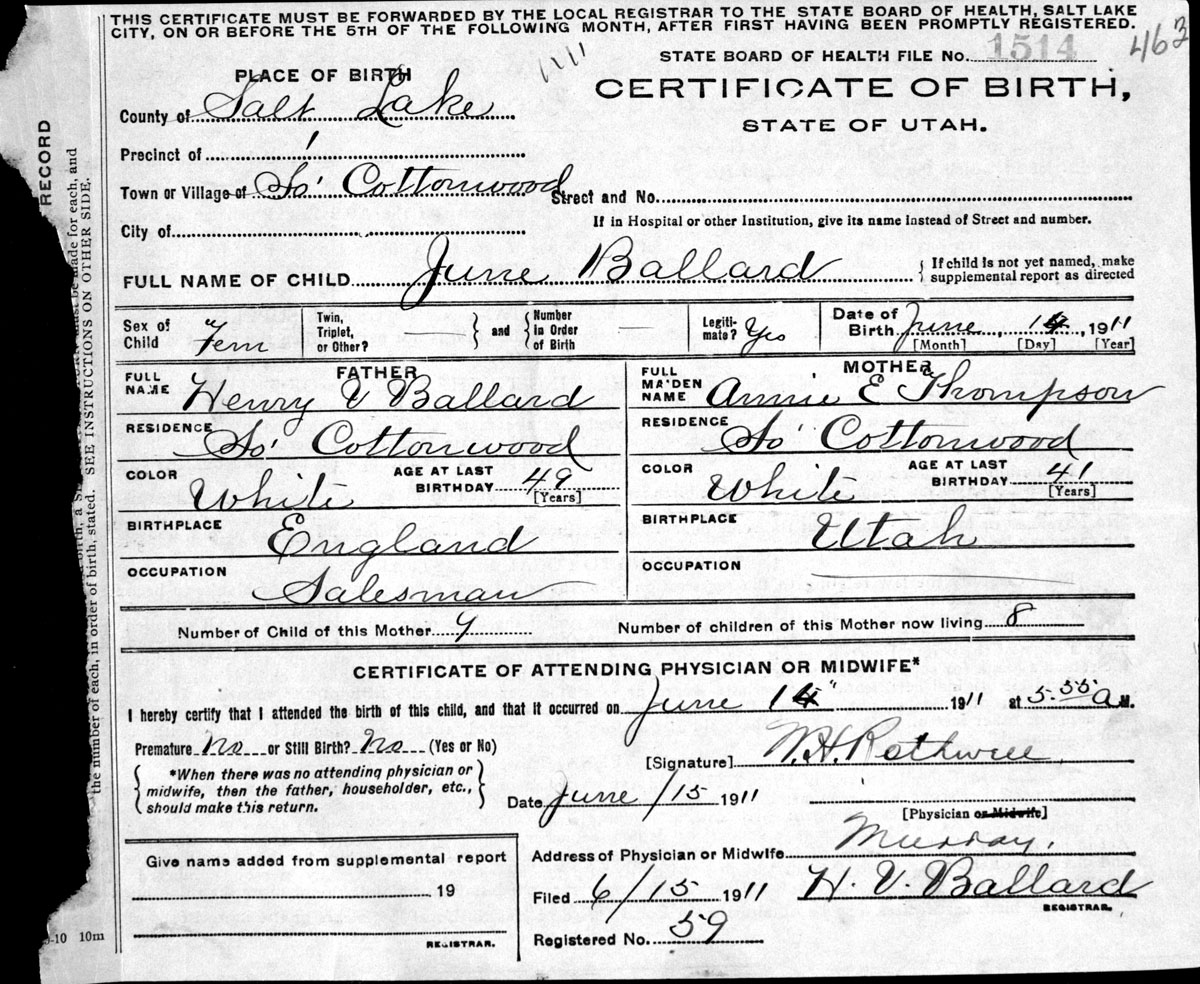 THIS CERTIFICATE MUST BE FORWARDED BY THE LOCAL REGISTRAR TO THE STATE BOARD OF HEALTH, SALT LAKE
CITY, ON OR BEFORE THE 5TH OF THE FOLLOWING MONTH, AFTER FIRST HAVING BEEN PROMPTLY REGISTERED.
STATE BOARD OF HEALTH FILE No. 1514 463
PLACE OF BIRTH
CERTIFICATE OF BIRTH,
STATE OF UTAH.
County of Salt Lake
Precinct of 1
Town or Village of So' Cottonwood
Street and No.
If in Hospital or other Institution, give its name instead of Street and number.
City of
FULL NAME OF CHILD June Ballard
{ If child is not yet named, make
supplemental report as directed
Sex of
Child Fem
Twin,
Triplet,
or Other?
and
Number
in Order
of Birth
Legiti-
mate? Yes
Date of
Birth June, 14, 1911
[Month] [Day] [Year]
FATHER
FULL
NAME Henry V Ballard
RESIDENCE So' Cottonwood
COLOR White AGE AT LAST
BIRTHDAY 49
[Years]
BIRTHPLACE England
OCCUPATION Salesman
MOTHER
FULL
MAIDEN
NAME Annie E Thompson
RESIDENCE So' Cottonwood
COLOR White AGE AT LAST
BIRTHDAY 41
[Years]
BIRTHPLACE Utah
OCCUPATION
Number of Child of this Mother
Number of children of this Mother now living 8
CERTIFICATE OF ATTENDING PHYSICIAN OR MIDWIFE*
I hereby certify that I attended the birth of this child, and that it occurred on June 14" 1911 at 5-55 a M.
Premature No or Still Birth? No (Yes or No)
[Signature] W.H. Rothwell
*When there was no attending physician or
midwife, then the father, householder, etc.,
should make this return.
Date June / 15 1911
[Physician or Midwife]
Address of Physician or Midwife Murray.
Filed 6/15 1911 H. V. Ballard
REGISTRAR.
Registered No. 59
Give name added from supplemental report
19
REGISTRAR.
-10 10m
RECORD
made for each, and
the number of each, in order of birth, stated. SEE INSTRUCTIONS ON OTHER SIDE.